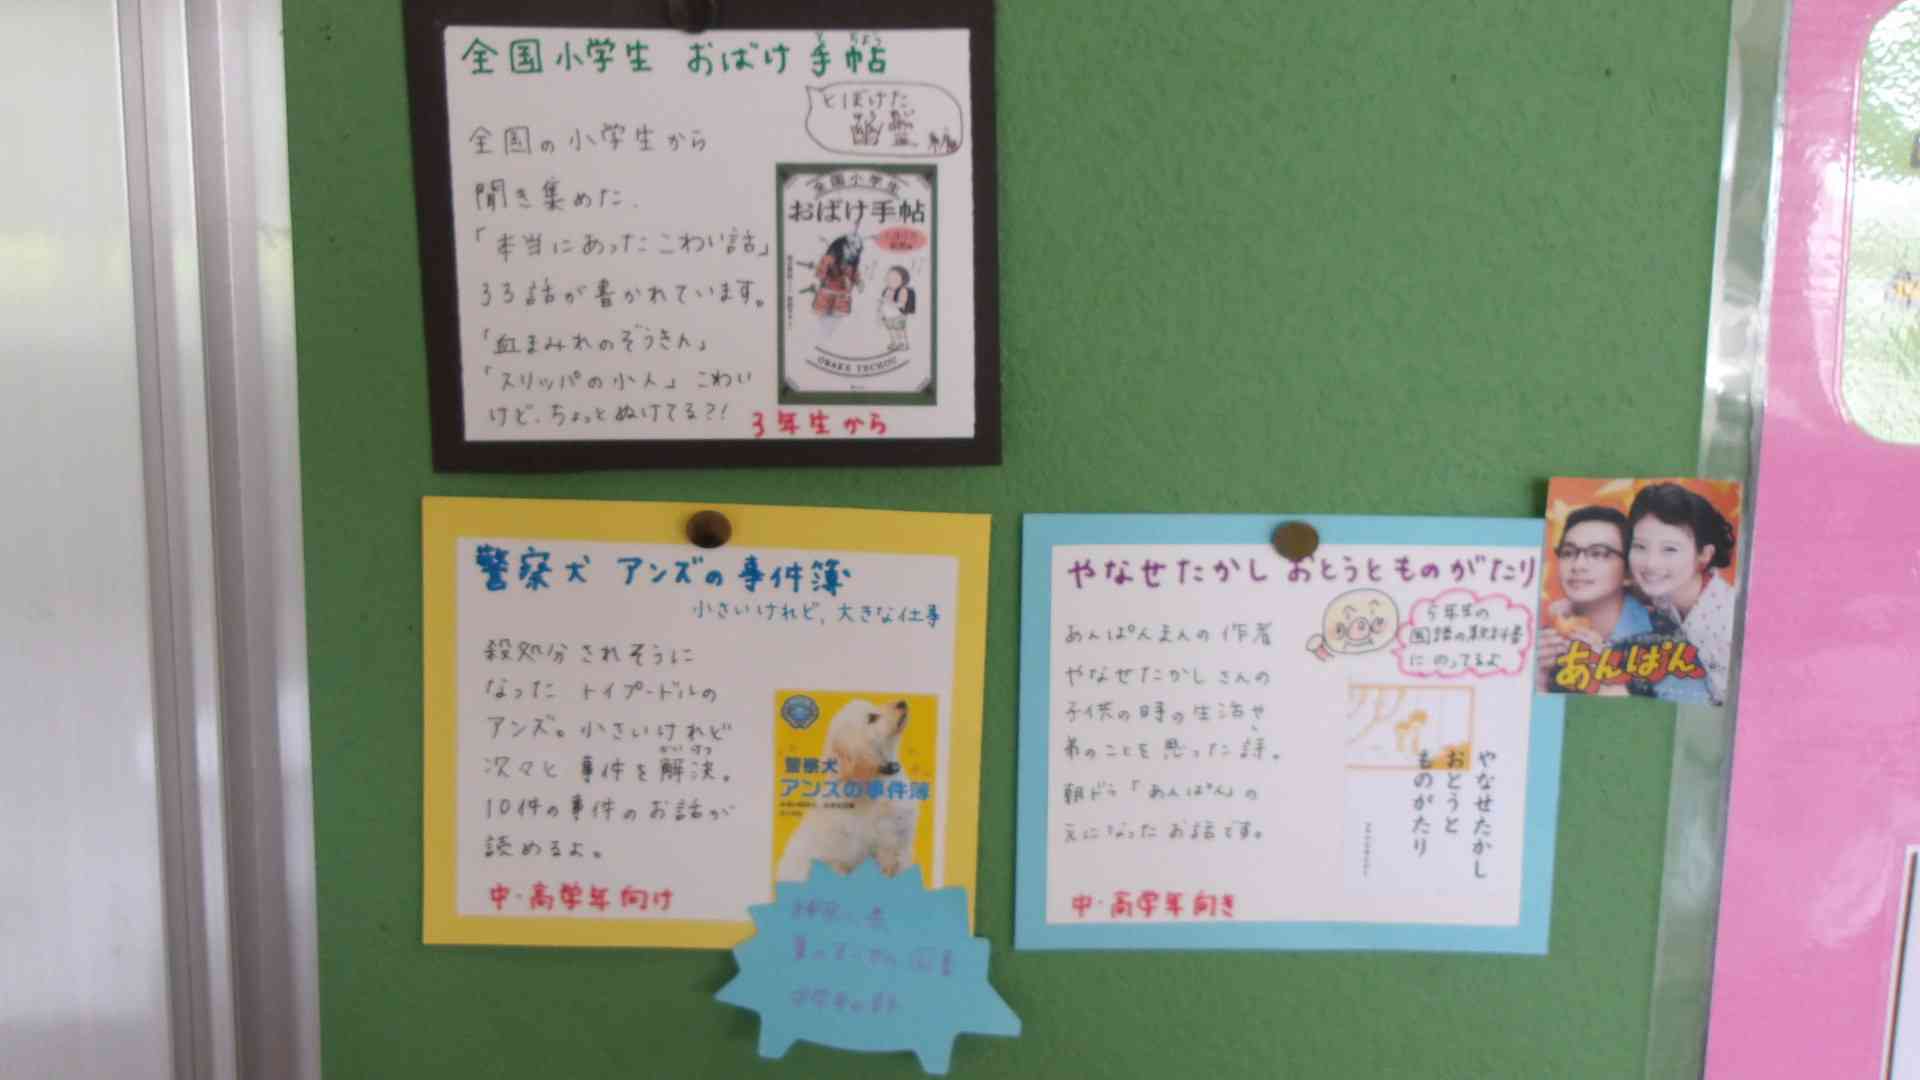 全国小学生 おばけ手帖
とぼけた
幽霊編
全国の小学生から
聞き集めた、
「本当にあったこわい話」
33話が書かれています。
「血まみれのぞうきん」
「スリッパの小人」こわい
けど、ちょっとぬけてる?!
3年生から
全国小学生
おばけ手帖
OBAKE TECHOU
警察犬 アンズの事件簿
小さいけれど、大きな仕事
殺処分されそうに
なった トイプードルの
アンズ。小さいけれど
次々と 事件を解決。
10件の事件のお話が
読めるよ。
中・高学年向け
警察犬
アンズの事件簿
やなせたかし おとうとものがたり
5年生の
国語の教科書
にのってるよ
あんぱんまんの作者
やなせたかしさんの
子供の時の生活や
弟のことを思った詩。
朝ドラ「あんぱん」の
元になったお話です。
中・高学年向き
やなせたかし
おとうと
ものがたり
あんぱん